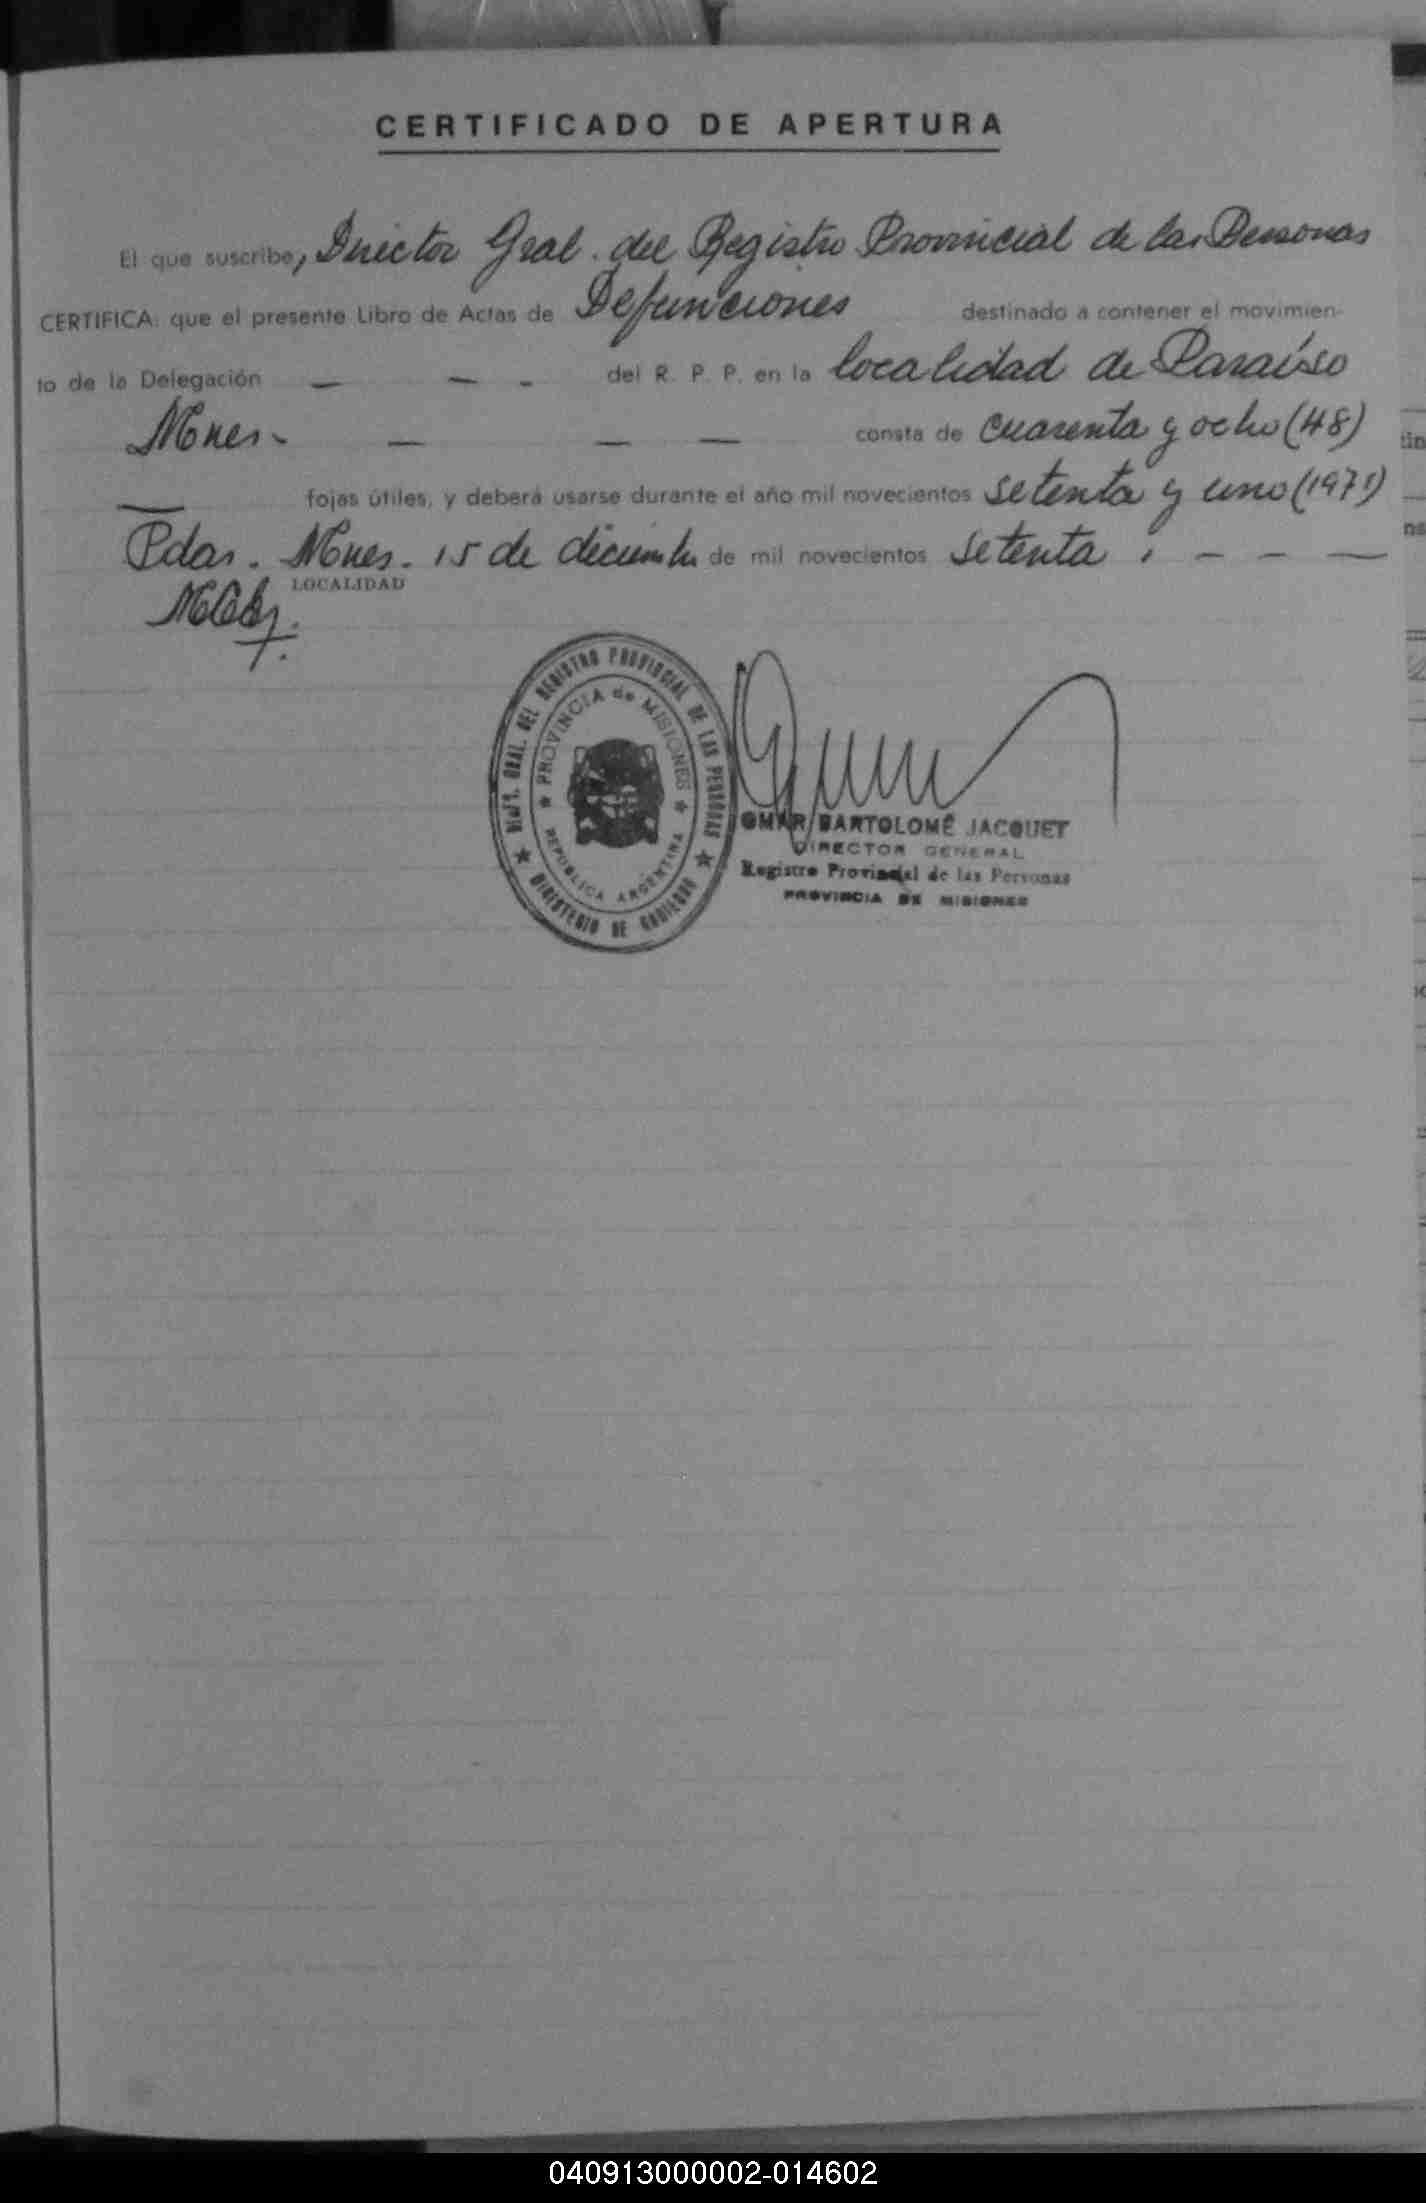 CERTIFICADO DE APERTURA
El que suscribe, Director Gral. del Registro Provincial de las Personas
CERTIFICA: que el presente Libro de Actas de Defunciones destinado a contener el movimien-
to de la Delegación — — - del R. P. P. en la localidad de Paraíso
Mnes- — — — consta de cuarenta y ocho (48)
— fojas útiles, y deberá usarse durante el año mil novecientos setenta y uno (1971)
Pdas. Mnes. 15 de diciembre de mil novecientos setenta . - - —
LOCALIDAD
DIR. GRAL. DEL REGISTRO PROVINCIAL DE LAS PERSONAS
PROVINCIA de MISIONES
REPUBLICA ARGENTINA
MINISTERIO DE GOBIERNO
OMAR BARTOLOMÉ JACQUET
DIRECTOR GENERAL
Registro Provincial de las Personas
PROVINCIA DE MISIONES
040913000002-014602